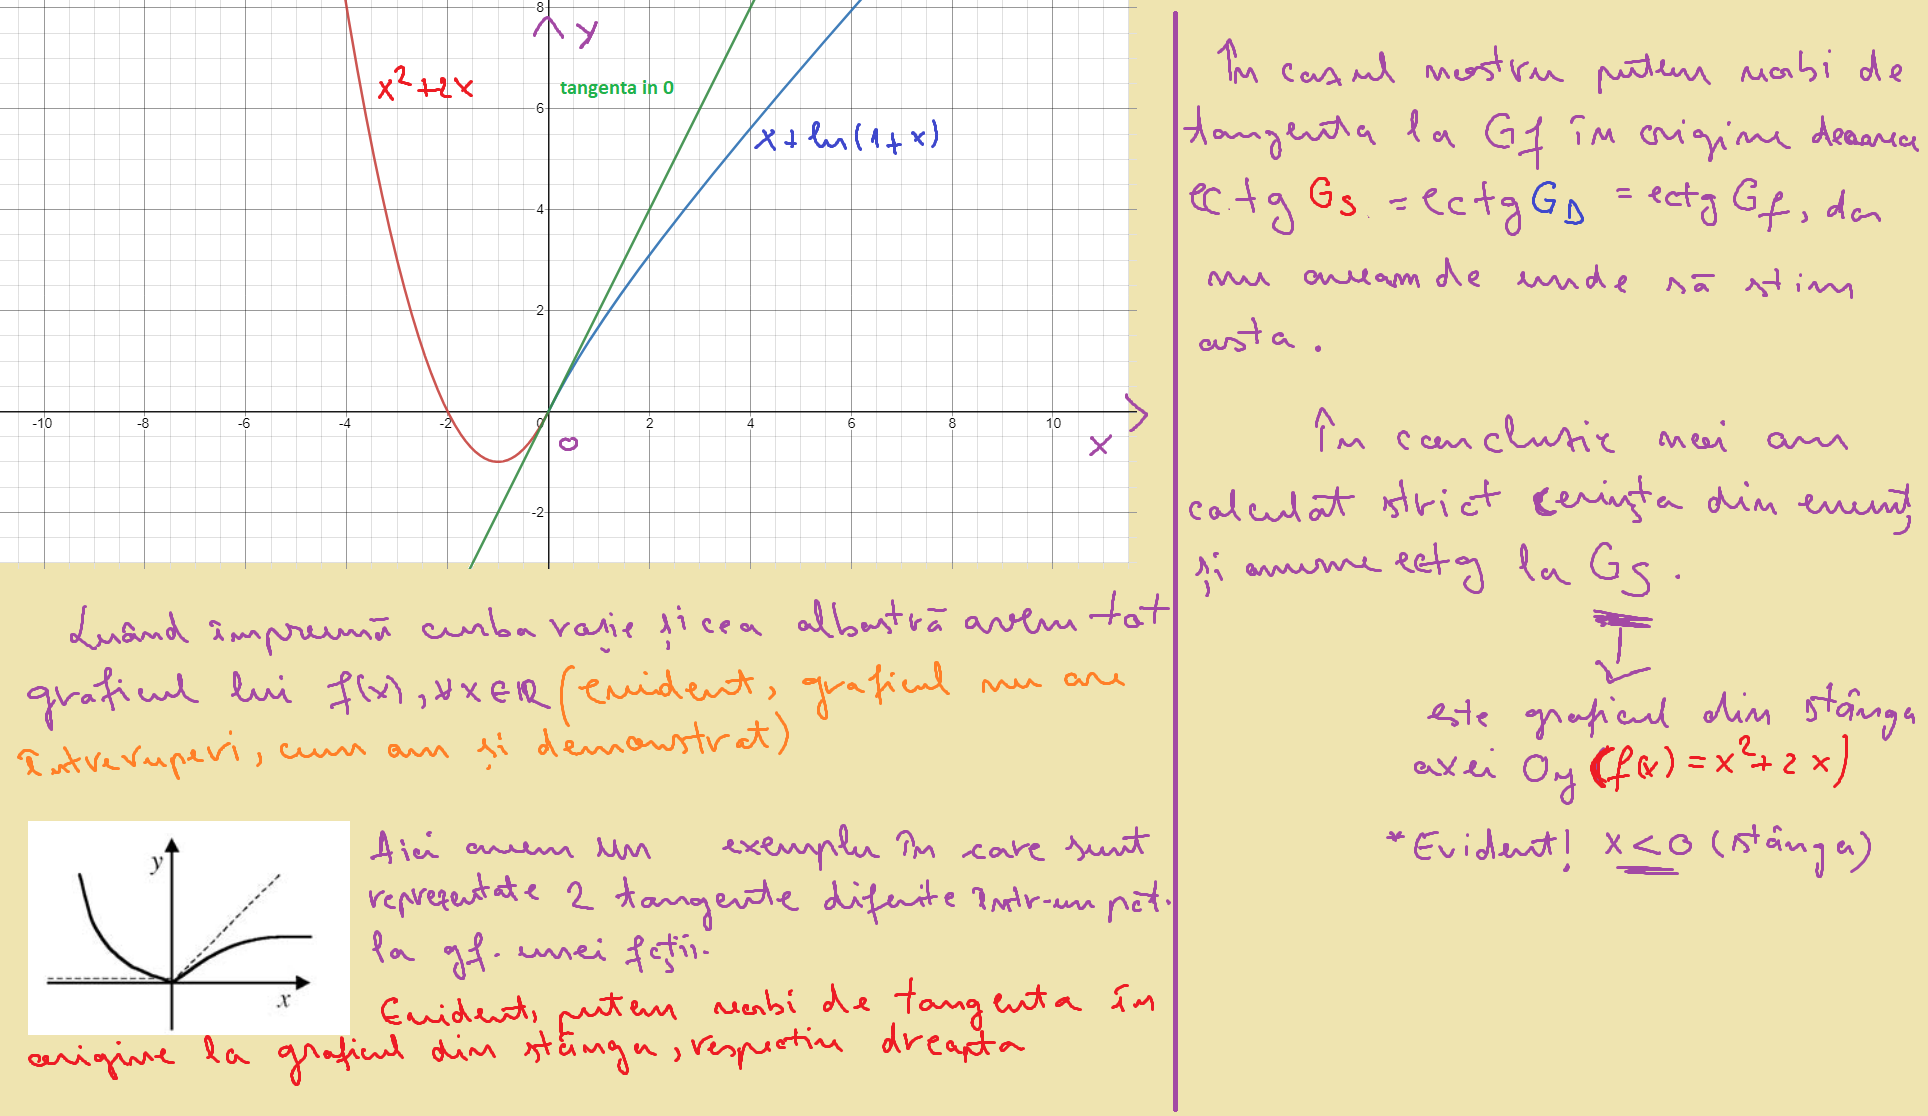 8
y
x²+2x
tangenta in 0
6
x+ln(1+x)
4
2
-10 -8 -6 -4 -2 0 2 4 6 8 10
O
x
-2
Luând împreună curba roșie și cea albastră avem tot
graficul lui f(x), ∀x∈ℝ (evident, graficul nu are
întreruperi, cum am și demonstrat)
y
x
Aici avem un exemplu în care sunt
reprezentate 2 tangente diferite într-un pct.
la gf. unei fcții.
Evident, putem vorbi de tangenta în
origine la graficul din stânga, respectiv dreapta
În cazul nostru putem vorbi de
tangenta la Gf în origine deoarece
ectg Gs = ectg GD = ectg Gf, dar
nu aveam de unde să stim
asta.
În concluzie noi am
calculat strict cerința din enunț,
și anume ectg la Gs.
este graficul din stânga
axei Oy (f(x) = x²+2x)
*Evident! x<0 (stânga)